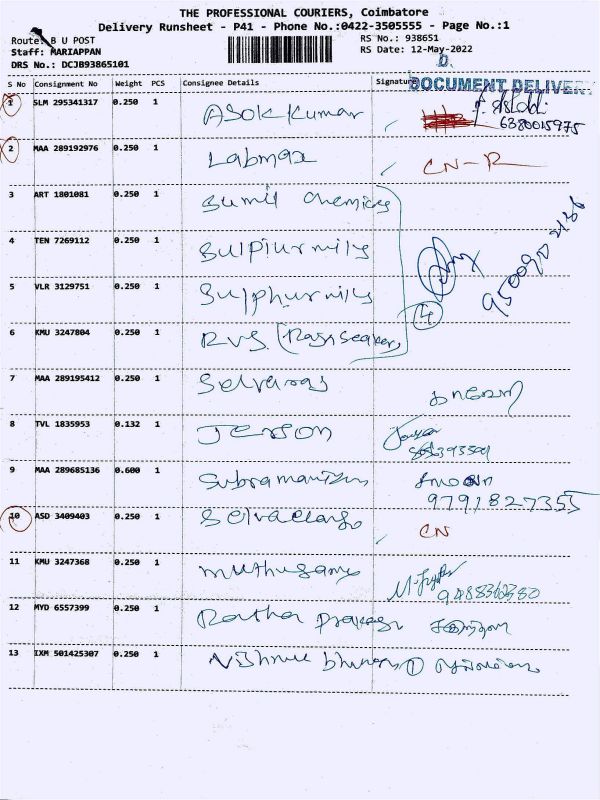 THE PROFESSIONAL COURIERS, Coimbatore
Delivery Runsheet - P41 - Phone No.:0422-3505555 - Page No.:1
Route: B U POST
RS No.: 938651
Staff: MARIAPPAN
RS Date: 12-May-2022
DRS No.: DCJB93865101
D.
S No Consignment No Weight PCS Consignee Details Signature
DOCUMENT DELIVER
1 SLM 295341317 0.250 1 ASOK Kumar
6380015975
2 MAA 289192976 0.250 1 Labmax CN-R
3 ART 1801081 0.250 1 Sumil Chemicls
4 TEN 7269112 0.250 1 Sulpiurmily
5 VLR 3129751 0.250 1 Sulphurmily
4
6 KMU 3247804 0.250 1 RVS
7 MAA 289195412 0.250 1 Selvaraj
8 TVL 1835953 0.132 1 Jerson
9 MAA 289685136 0.600 1 Subramaniam
9791827355
10 ASD 3409403 0.250 1 CN
11 KMU 3247368 0.250 1 muthusamy
9488360380
12 MYD 6557399 0.250 1 Ratha prakash
13 IXM 501425307 0.250 1 1